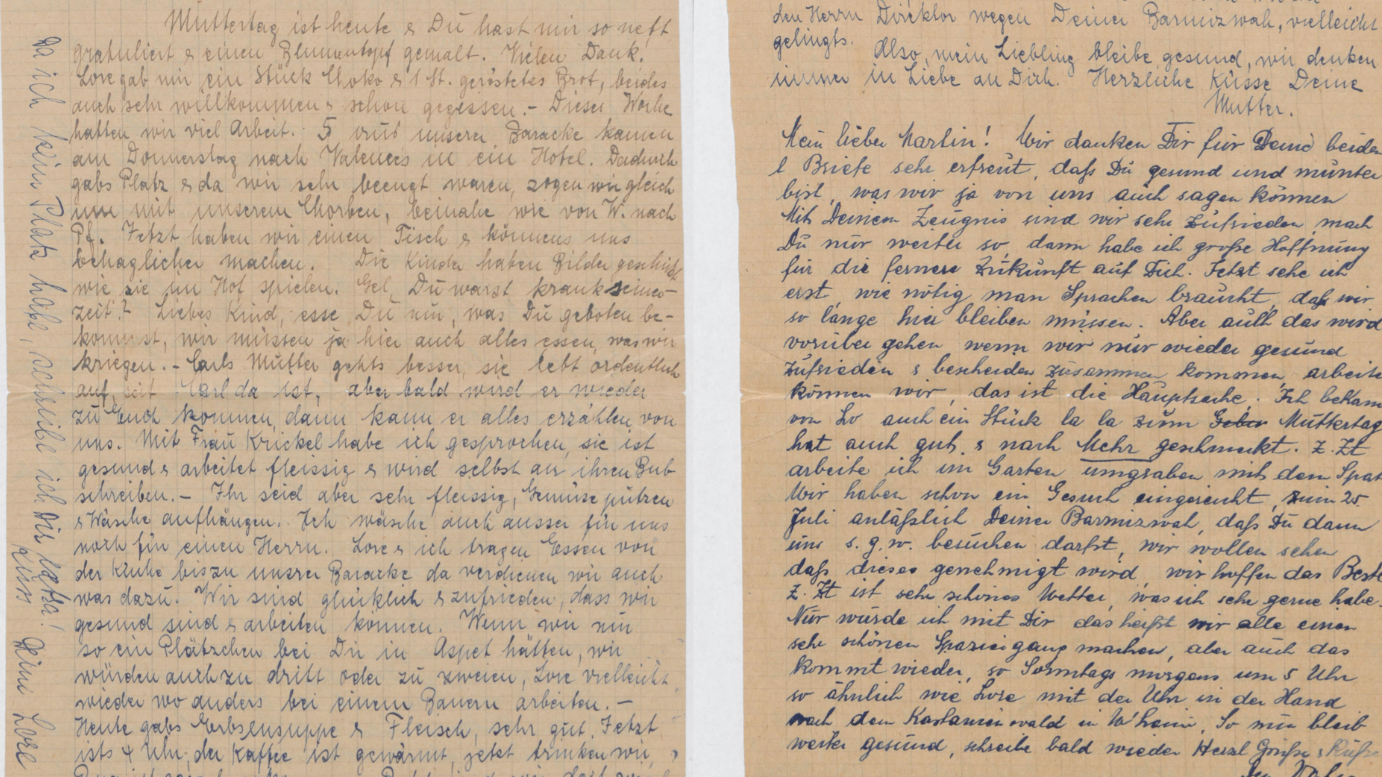 Muttertag ist heute & Du hast mir so nett
gratuliert & einen Blumentopf gemalt. Vielen Dank.
Lore gab mir ein Stück Choko & 1 St. geröstetes Brot, beides
auch sehr willkommen & schon gegessen. – Diese Woche
hatten wir viel Arbeit. 5 aus unserer Baracke kamen
am Donnerstag nach Valences in ein Hotel. Dadurch
gabs Platz & da wir sehr beengt waren, zogen wir gleich
um mit unserem Chorben, beinahe wie von W. nach
Pf. Jetzt haben wir einen Tisch & könnens uns
behaglicher machen. Die Kinder haben Bilder geschickt
wie sie im Hof spielen. Gel, Du warst krank seiner-
zeit? Liebes Kind, esse Du nur, was Du geboten be-
kommst, wir müssen ja hier auch alles essen, was wir
kriegen. – Carls Mutter gehts besser, sie lebt ordentlich
auf, seit Carl da ist, aber bald wird er wieder
zu Euch kommen, dann kann er alles erzählen von
uns. Mit Frau Krickel habe ich gesprochen, sie ist
gesund & arbeitet fleissig & wird selbst an ihren Bub
schreiben. – Ihr seid aber sehr fleissig, Gemüse putzen
& Wäsche aufhängen. Ich wäsche auch ausser für uns
noch für einen Herrn. Lore & ich tragen Essen von
der Küche bis zu unsrer Baracke da verdienen wir auch
was dazu. Wir sind glücklich & zufrieden, dass wir
gesund sind & arbeiten können. Wenn wir nur
so ein Plätzchen bei Dir in Aspet hätten, wir
würden auch zu dritt oder zu zweien, Lore vielleicht
wieder wo anders bei einem Bauern arbeiten. –
Heute gabs Erbsensuppe & Fleisch, sehr gut. Jetzt
ists 4 Uhr, der Kaffee ist gewärmt, jetzt trinken wir,
Da ich kein Platz habe, schreibe ich Dir extra!
Kuss Deine Lore
den Herrn Direktor wegen Deiner Barmizwah, vielleicht
gelingts. Also, mein Liebling bleibe gesund, wir denken
immer in Liebe an Dich. Herzliche Küsse Deine
Mutter.
Mein lieber Martin! Wir danken Dir für Deine beiden
l Briefe sehr erfreut, daß Du gesund und munter
bist, was wir ja von uns auch sagen können
Mit Deinem Zeugnis sind wir sehr zufrieden, mach
Du nur weiter so, dann habe ich große Hoffnung
für die fernere Zukunft auf Dich. Jetzt sehe ich
erst, wie nötig man Sprachen braucht, daß wir
so lange hier bleiben müssen. Aber auch das wird
vorüber gehen wenn wir nur wieder gesund
zufrieden & bescheiden zusammen kommen, arbeiten
können wir, das ist die Hauptsache. Ich bekam
von Lo auch ein Stück la la zum Muttertag
hat auch gut, & nach Mehr geschmeckt. z. Zt
arbeite ich im Garten umgraben mit dem Spat
Wir haben schon ein Gesuch eingereicht, zum 25
Juli anläßlich Deiner Barmizwah, daß Du dann
uns s. g. w. besuchen darfst, wir wollen sehen
daß dieses genehmigt wird, wir hoffen das Beste
Z. Zt ist sehr schönes Wetter, was ich sehr gerne habe.
Nur würde ich mit Dir das heißt wir alle einen
sehr schönen Spaziergang machen, aber auch das
kommt wieder, so Sonntags morgens um 5 Uhr
so ähnlich wie Lore mit der Uhr in der Hand
nach dem Kastanienwald in W'heim. So nun bleib
weiter gesund, schreibe bald wieder Herzl Grüße & Küße